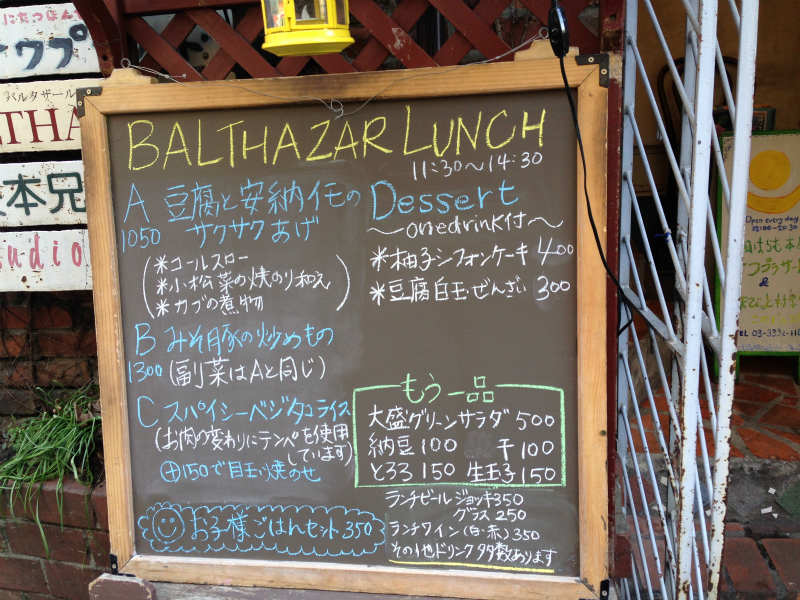 にたつほん
オウプ
バルタザール
LTHA
本兄
tudio
BALTHAZAR LUNCH
11:30～14:30
A 豆腐と安納イモの
1050 サクサクあげ
(*コールスロー
*小松菜の焼のり和え
*カブの煮物)
B みそ豚の炒めもの
1300 (副菜はAと同じ)
C スパイシーベジタコライス
(お肉の変わりにテンペを使用
しています)
⊕150で目玉焼のせ
お子様ごはんセット 350
Dessert
～onedrink付～
*柚子シフォンケーキ 400
*豆腐白玉ぜんざい 300
もう一品
大盛グリーンサラダ 500
納豆 100 干 100
とろろ 150 生玉子 150
ランチビール ジョッキ 350
グラス 250
ランチワイン (白・赤) 350
その他ドリンク多数あります
Open every day
&
TEL 03-33